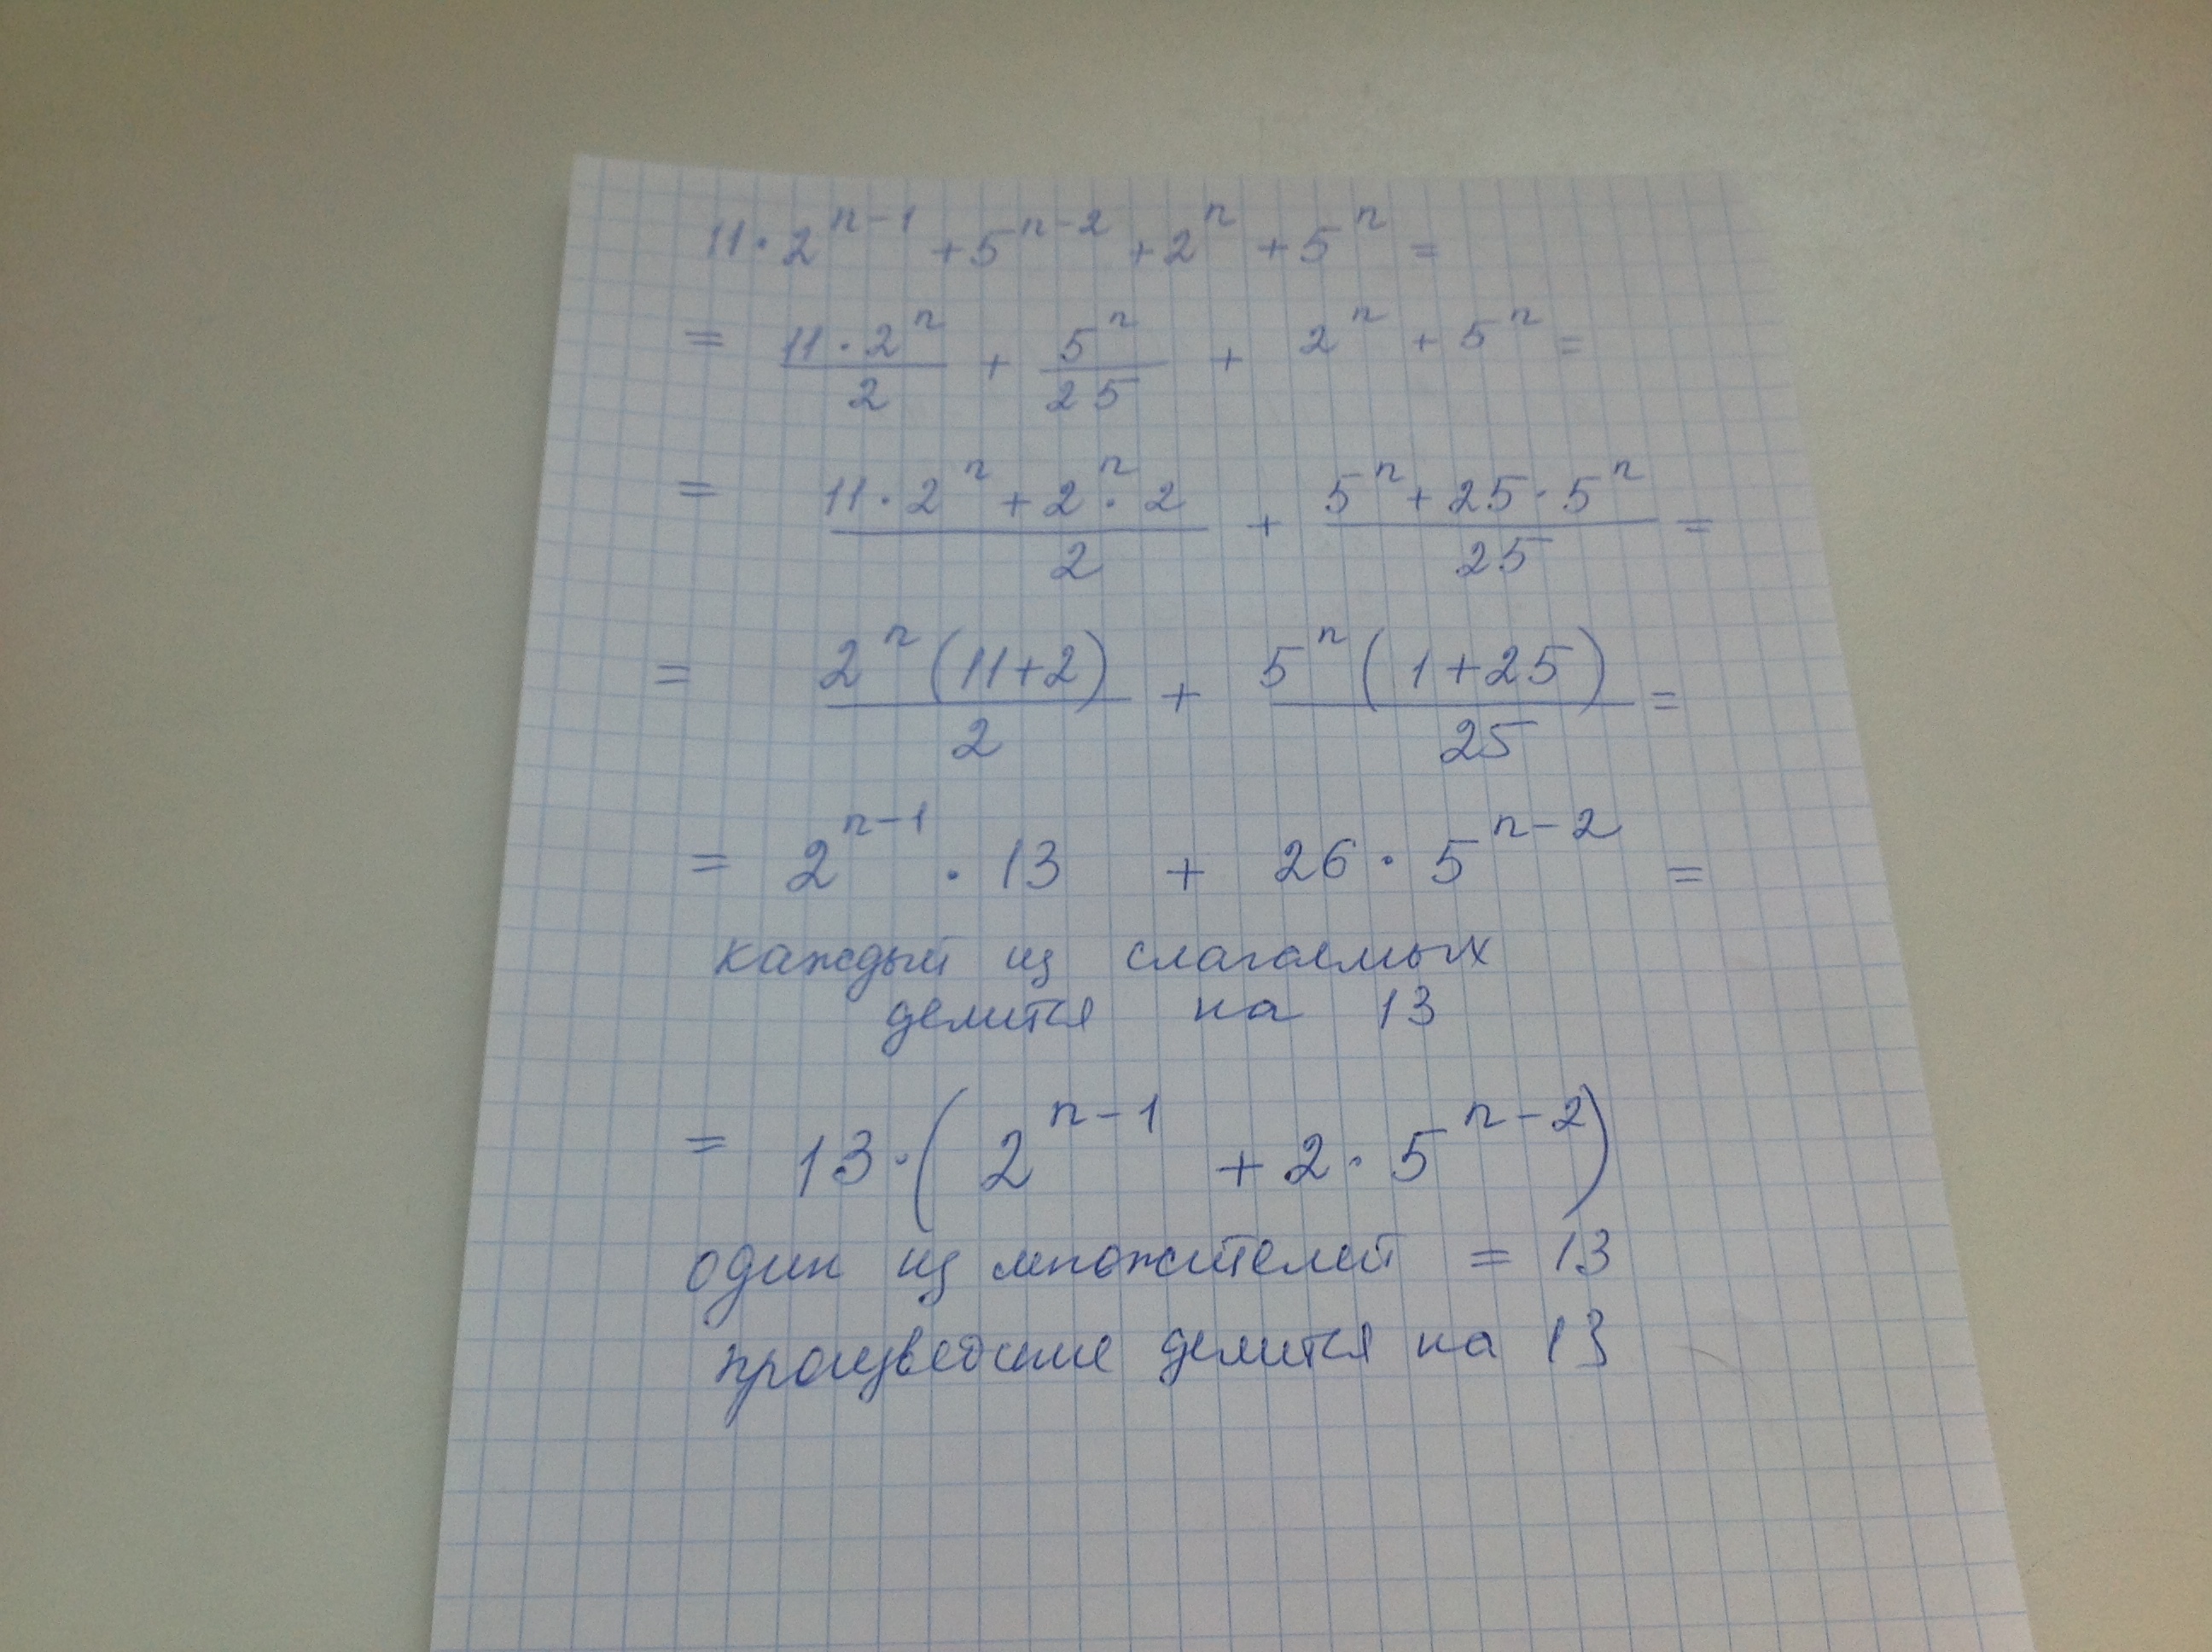 11·2^(n-1) + 5^(n-2) + 2^n + 5^n =
= (11·2^n)/2 + 5^n/25 + 2^n + 5^n =
= (11·2^n + 2^n·2)/2 + (5^n + 25·5^n)/25 =
= 2^n(11+2)/2 + 5^n(1+25)/25 =
= 2^(n-1) · 13 + 26 · 5^(n-2) =
каждый из слагаемых
делится на 13
= 13·(2^(n-1) + 2·5^(n-2))
один из множителей = 13
произведение делится на 13